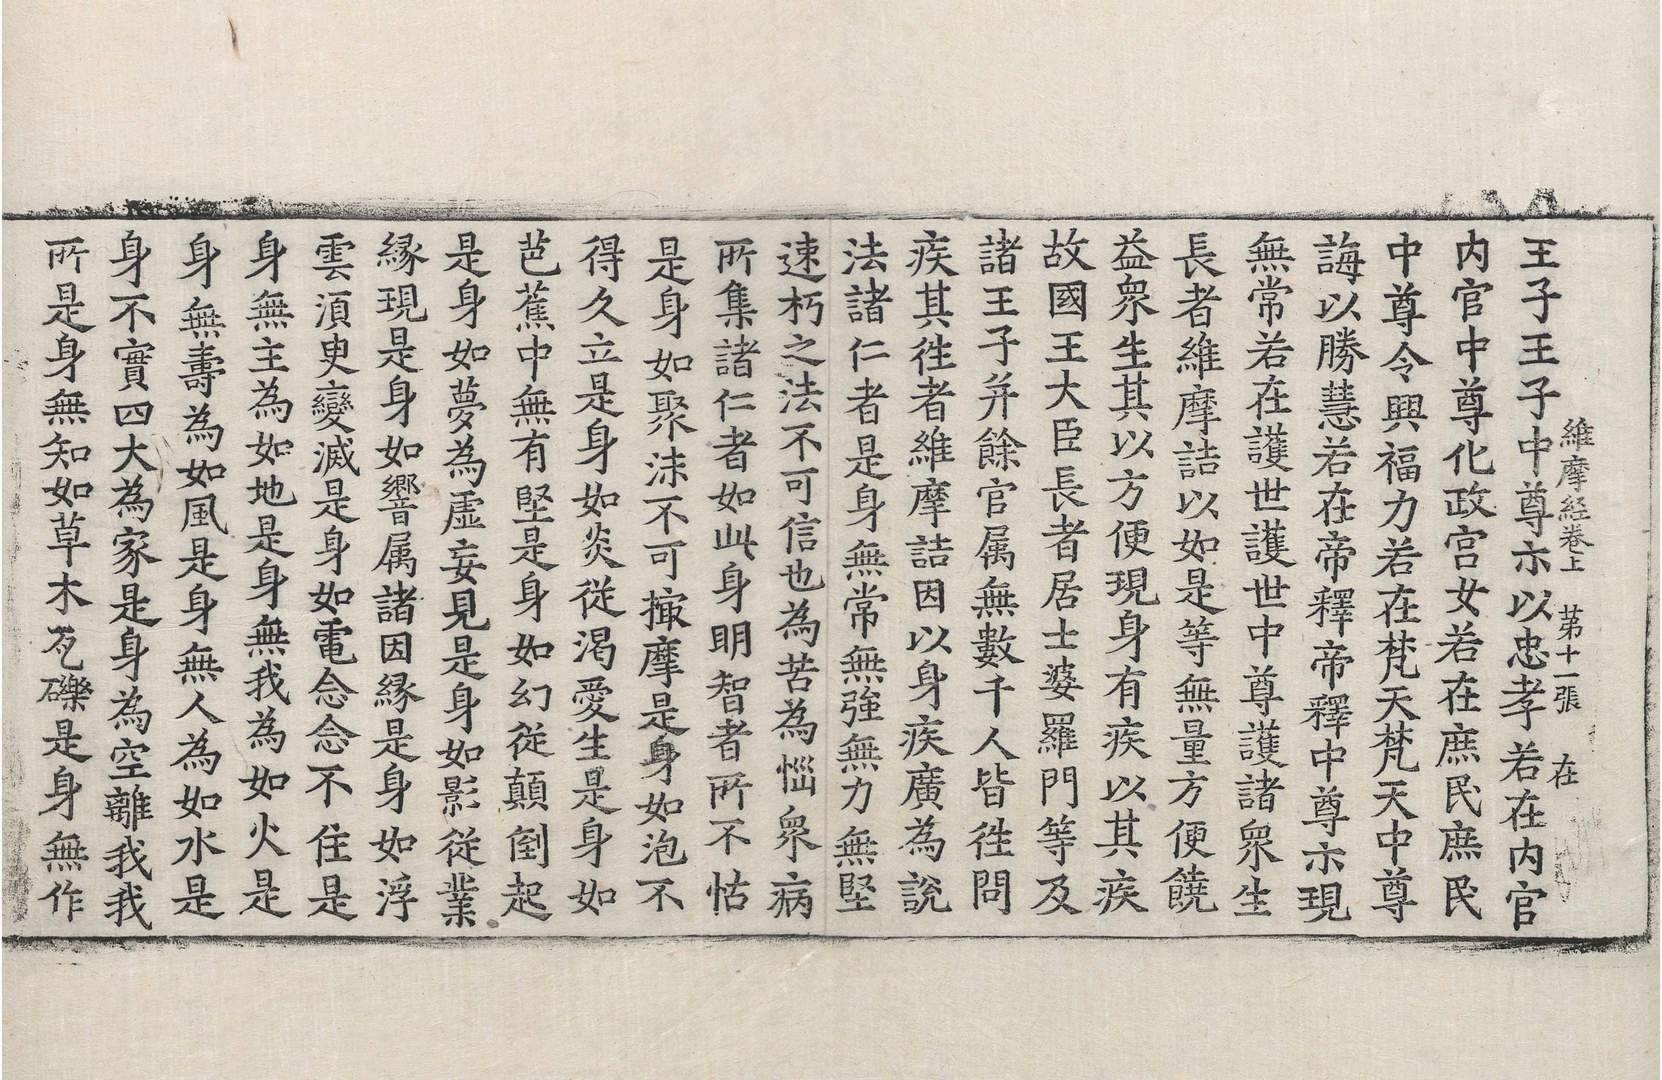 維摩経卷上　第十一張　在
王子王子中尊示以忠孝若在内官
内官中尊化政宫女若在庶民庶民
中尊令興福力若在梵天梵天中尊
誨以勝慧若在帝釋帝釋中尊示現
無常若在護世護世中尊護諸衆生
長者維摩詰以如是等無量方便饒
益衆生其以方便現身有疾以其疾
故國王大臣長者居士婆羅門等及
諸王子并餘官属無數千人皆往問
疾其往者維摩詰因以身疾廣為說
法諸仁者是身無常無強無力無堅
速朽之法不可信也為苦為惱衆病
所集諸仁者如此身明智者所不怙
是身如聚沫不可撮摩是身如泡不
得久立是身如炎從渴愛生是身如
芭蕉中無有堅是身如幻從顛倒起
是身如夢為虛妄見是身如影從業
緣現是身如響属諸因緣是身如浮
雲須臾變滅是身如電念念不住是
身無主為如地是身無我為如火是
身無壽為如風是身無人為如水是
身不實四大為家是身為空離我我
所是身無知如草木瓦礫是身無作